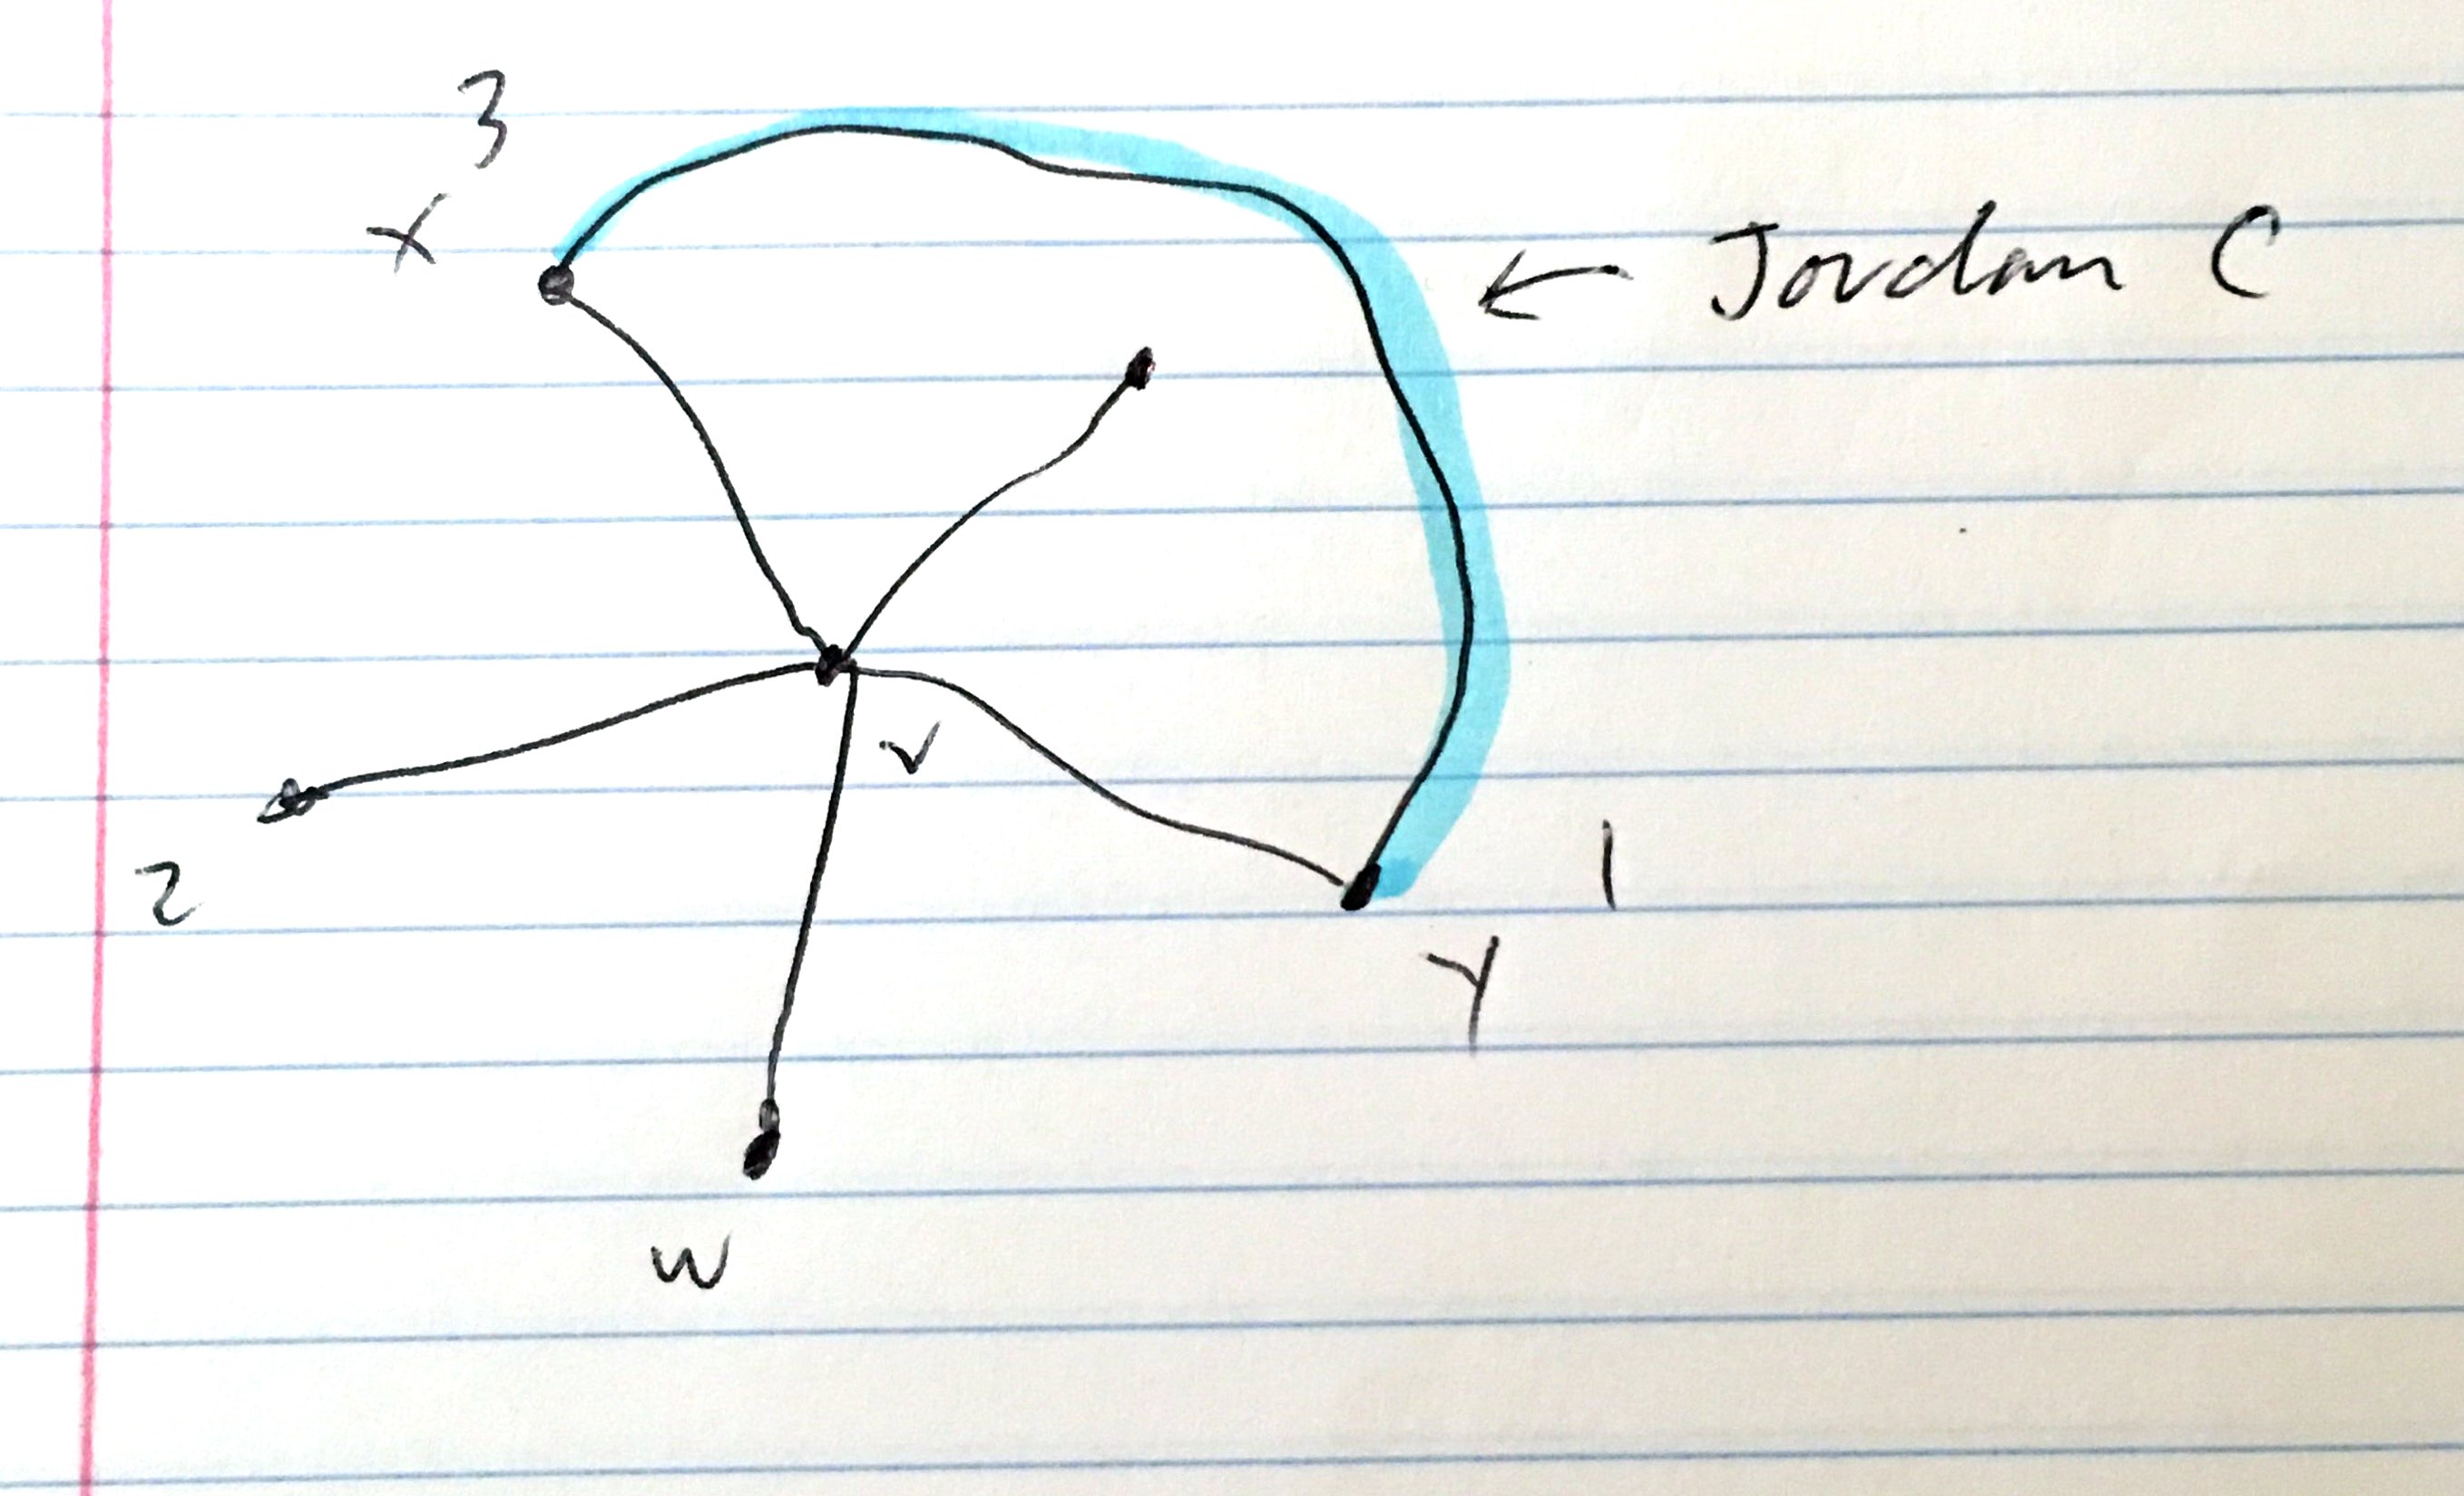 3
X
Jordan C
V
2
1
Y
W